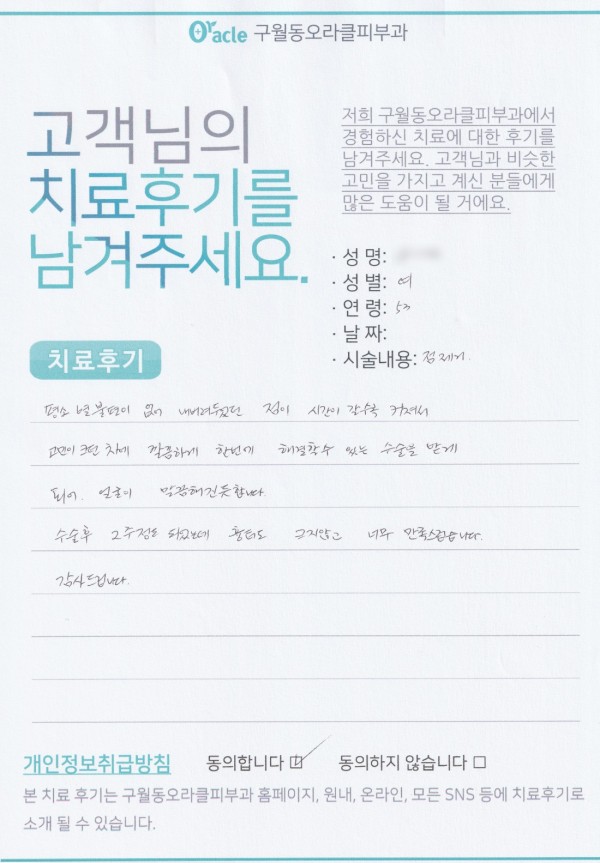 Oracle 구월동오라클피부과
고객님의
치료후기를
남겨주세요.
저희 구월동오라클피부과에서
경험하신 치료에 대한 후기를
남겨주세요. 고객님과 비슷한
고민을 가지고 계신 분들에게
많은 도움이 될 거에요.
· 성 명:
· 성 별: 여
· 연 령: 53
· 날 짜:
· 시술내용: 점제거.
치료후기
평소 별 불편이 없어 내버려두었던 점이 시간이 갈수록 커져서
고민이 크던 차에 깔끔하게 한번에 해결할수 있는 수술을 받게
되어. 얼굴이 말끔해진듯합니다.
수술후 2주정도 되었는데 흉터도 크지않고 너무 만족스럽습니다.
감사드립니다.
개인정보취급방침 동의합니다 ☑ 동의하지 않습니다 □
본 치료 후기는 구월동오라클피부과 홈페이지, 원내, 온라인, 모든 SNS 등에 치료후기로
소개 될 수 있습니다.